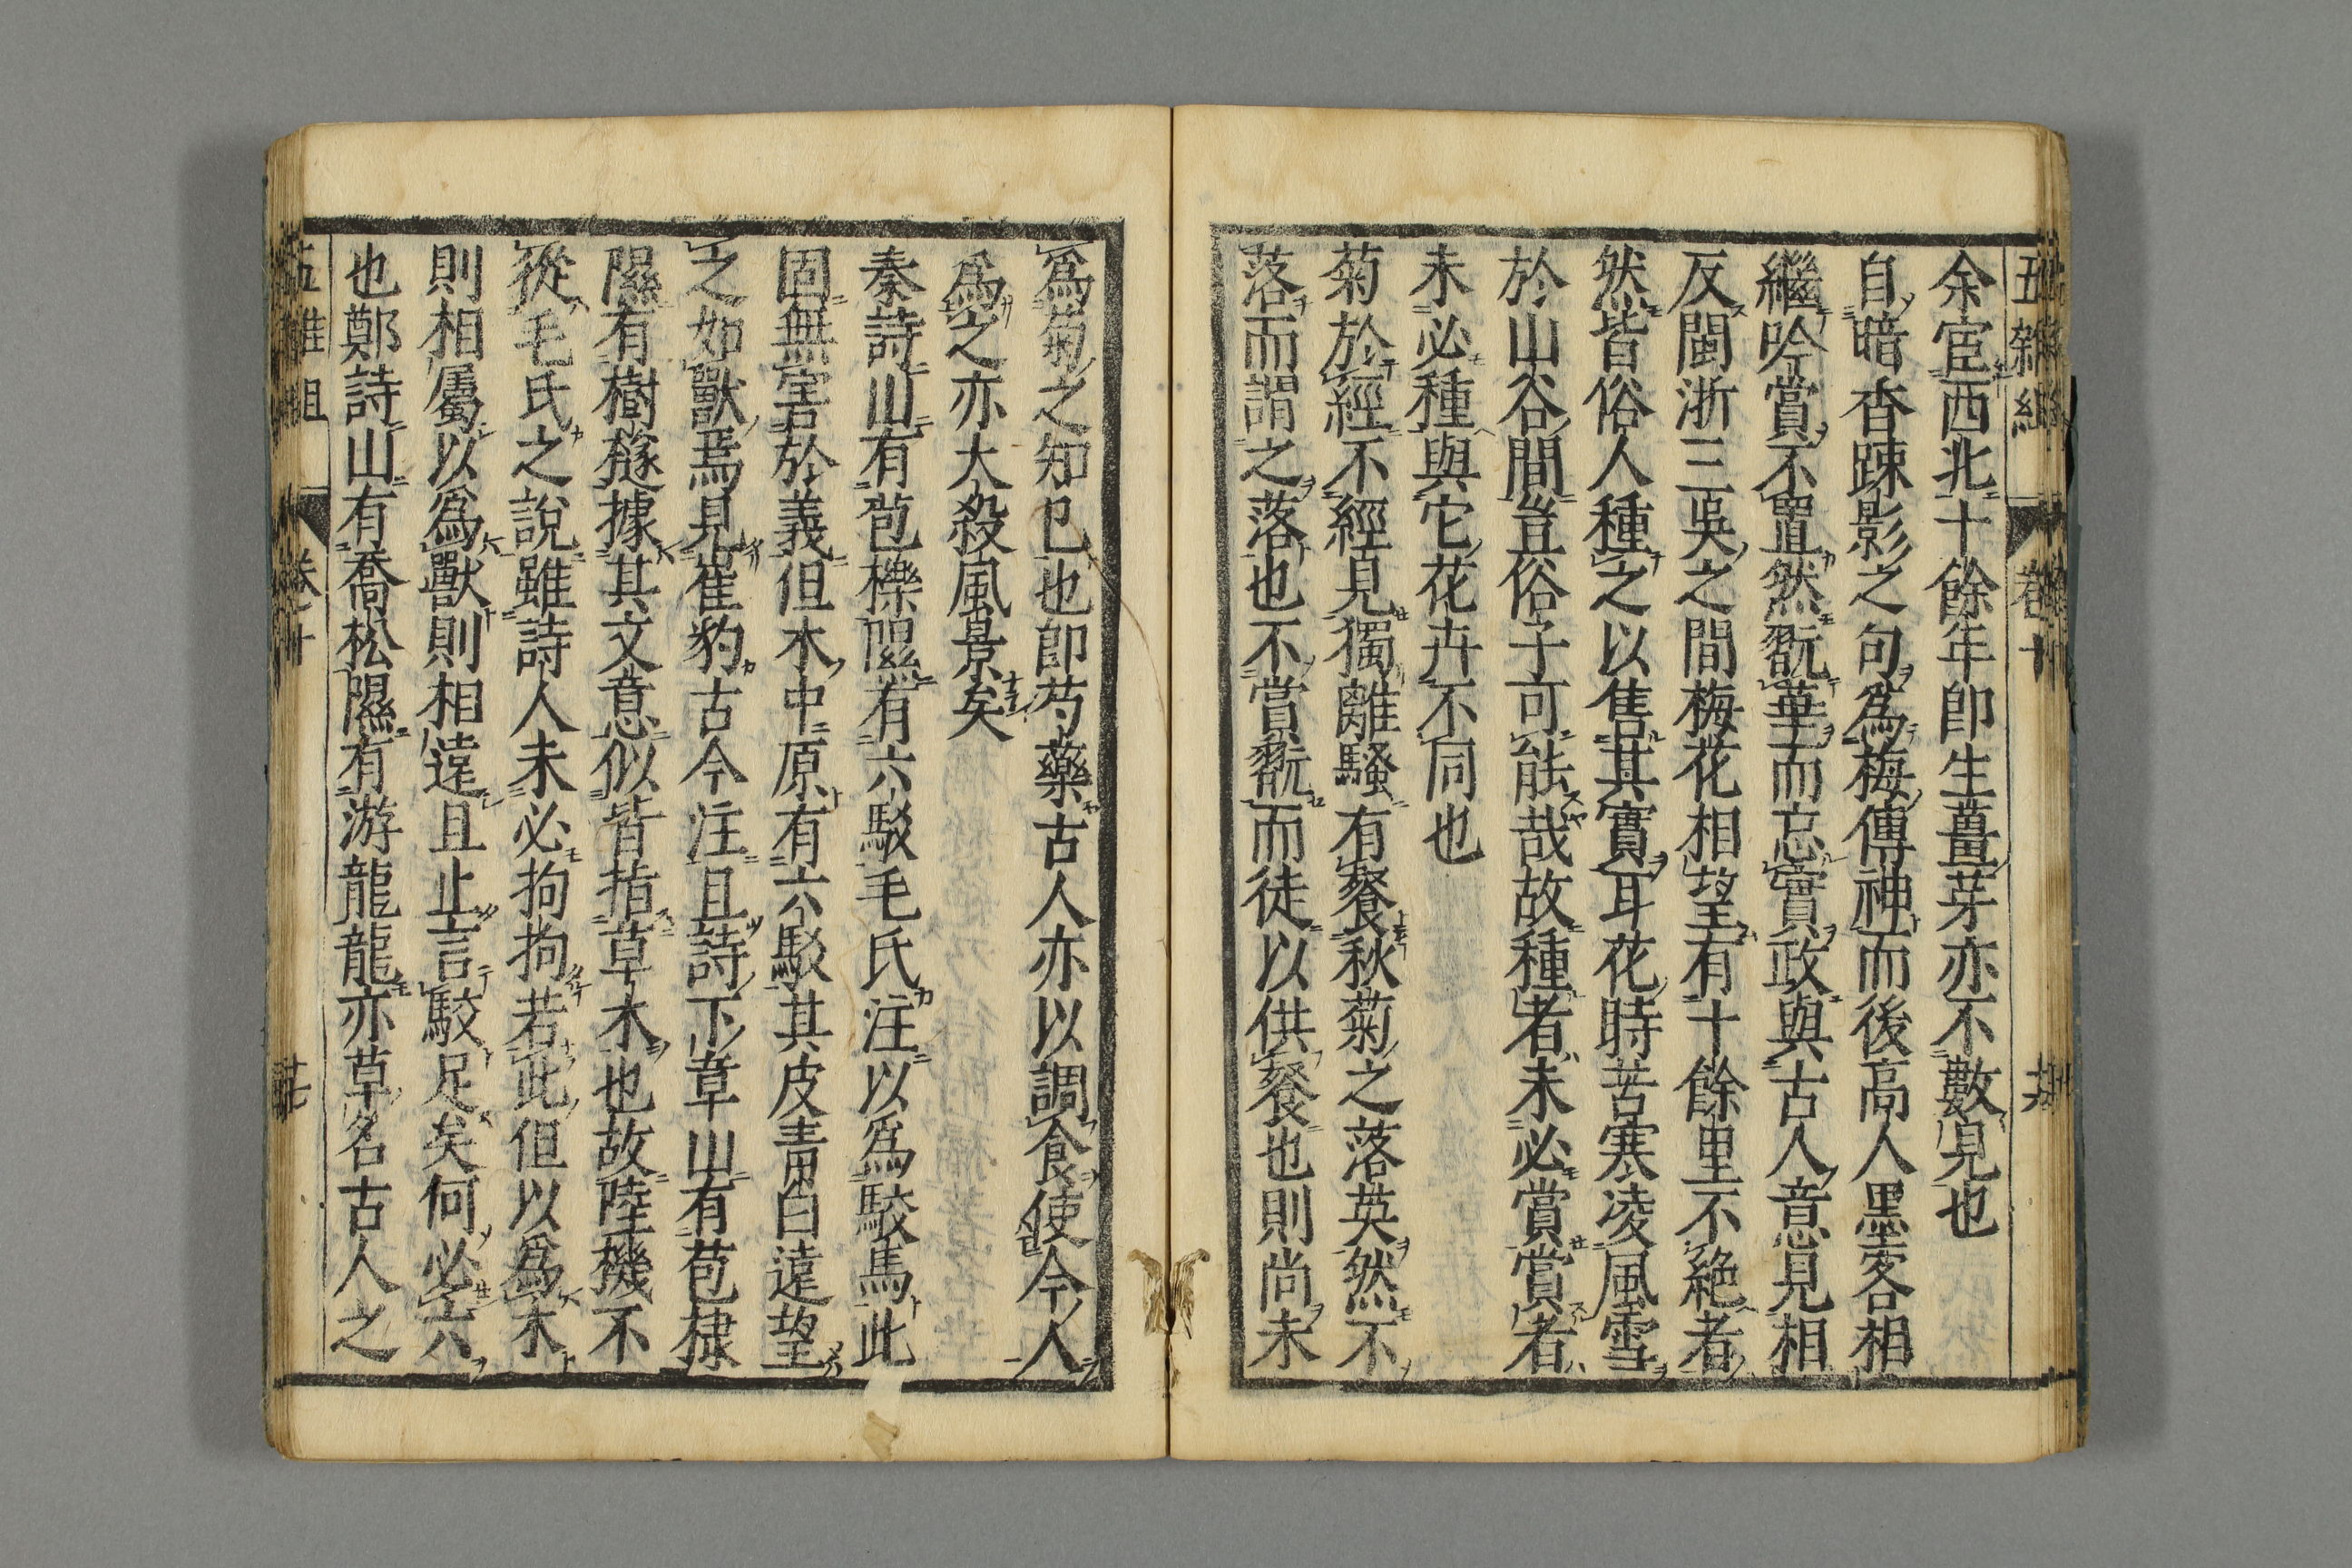 五雜組 卷十
余宦西北十餘年卽生薑芽亦不數見也
自暗香踈影之句爲梅傳神而後高人墨客相
繼吟賞不置然翫華而忘實政與古人意見相
反閩浙三吳之間梅花相望有十餘里不絶者
然皆俗人種之以售其實耳花時苦寒凌風雪
於山谷間豈俗子可能哉故種者未必賞賞者
未必種與它花卉不同也
菊於經不經見獨離騷有餐秋菊之落英然不
落而謂之落也不賞翫而徒以供餐也則尚未
爲菊之知已也卽芍藥古人亦以調食使今人
爲之亦大殺風景矣
秦詩山有苞櫟隰有六駁毛氏注以爲駮馬此
固無害於義但木中原有六駁其皮青白遠望
之如獸焉見崔豹古今注且詩下章山有苞棣
隰有樹檖據其文意似皆指草木也故陸機不
從毛氏之說雖詩人未必拘拘若此但以爲木
則相屬以爲獸則相遠且止言駮足矣何必六
也鄭詩山有喬松隰有游龍龍亦草名古人之
五雜組 卷十